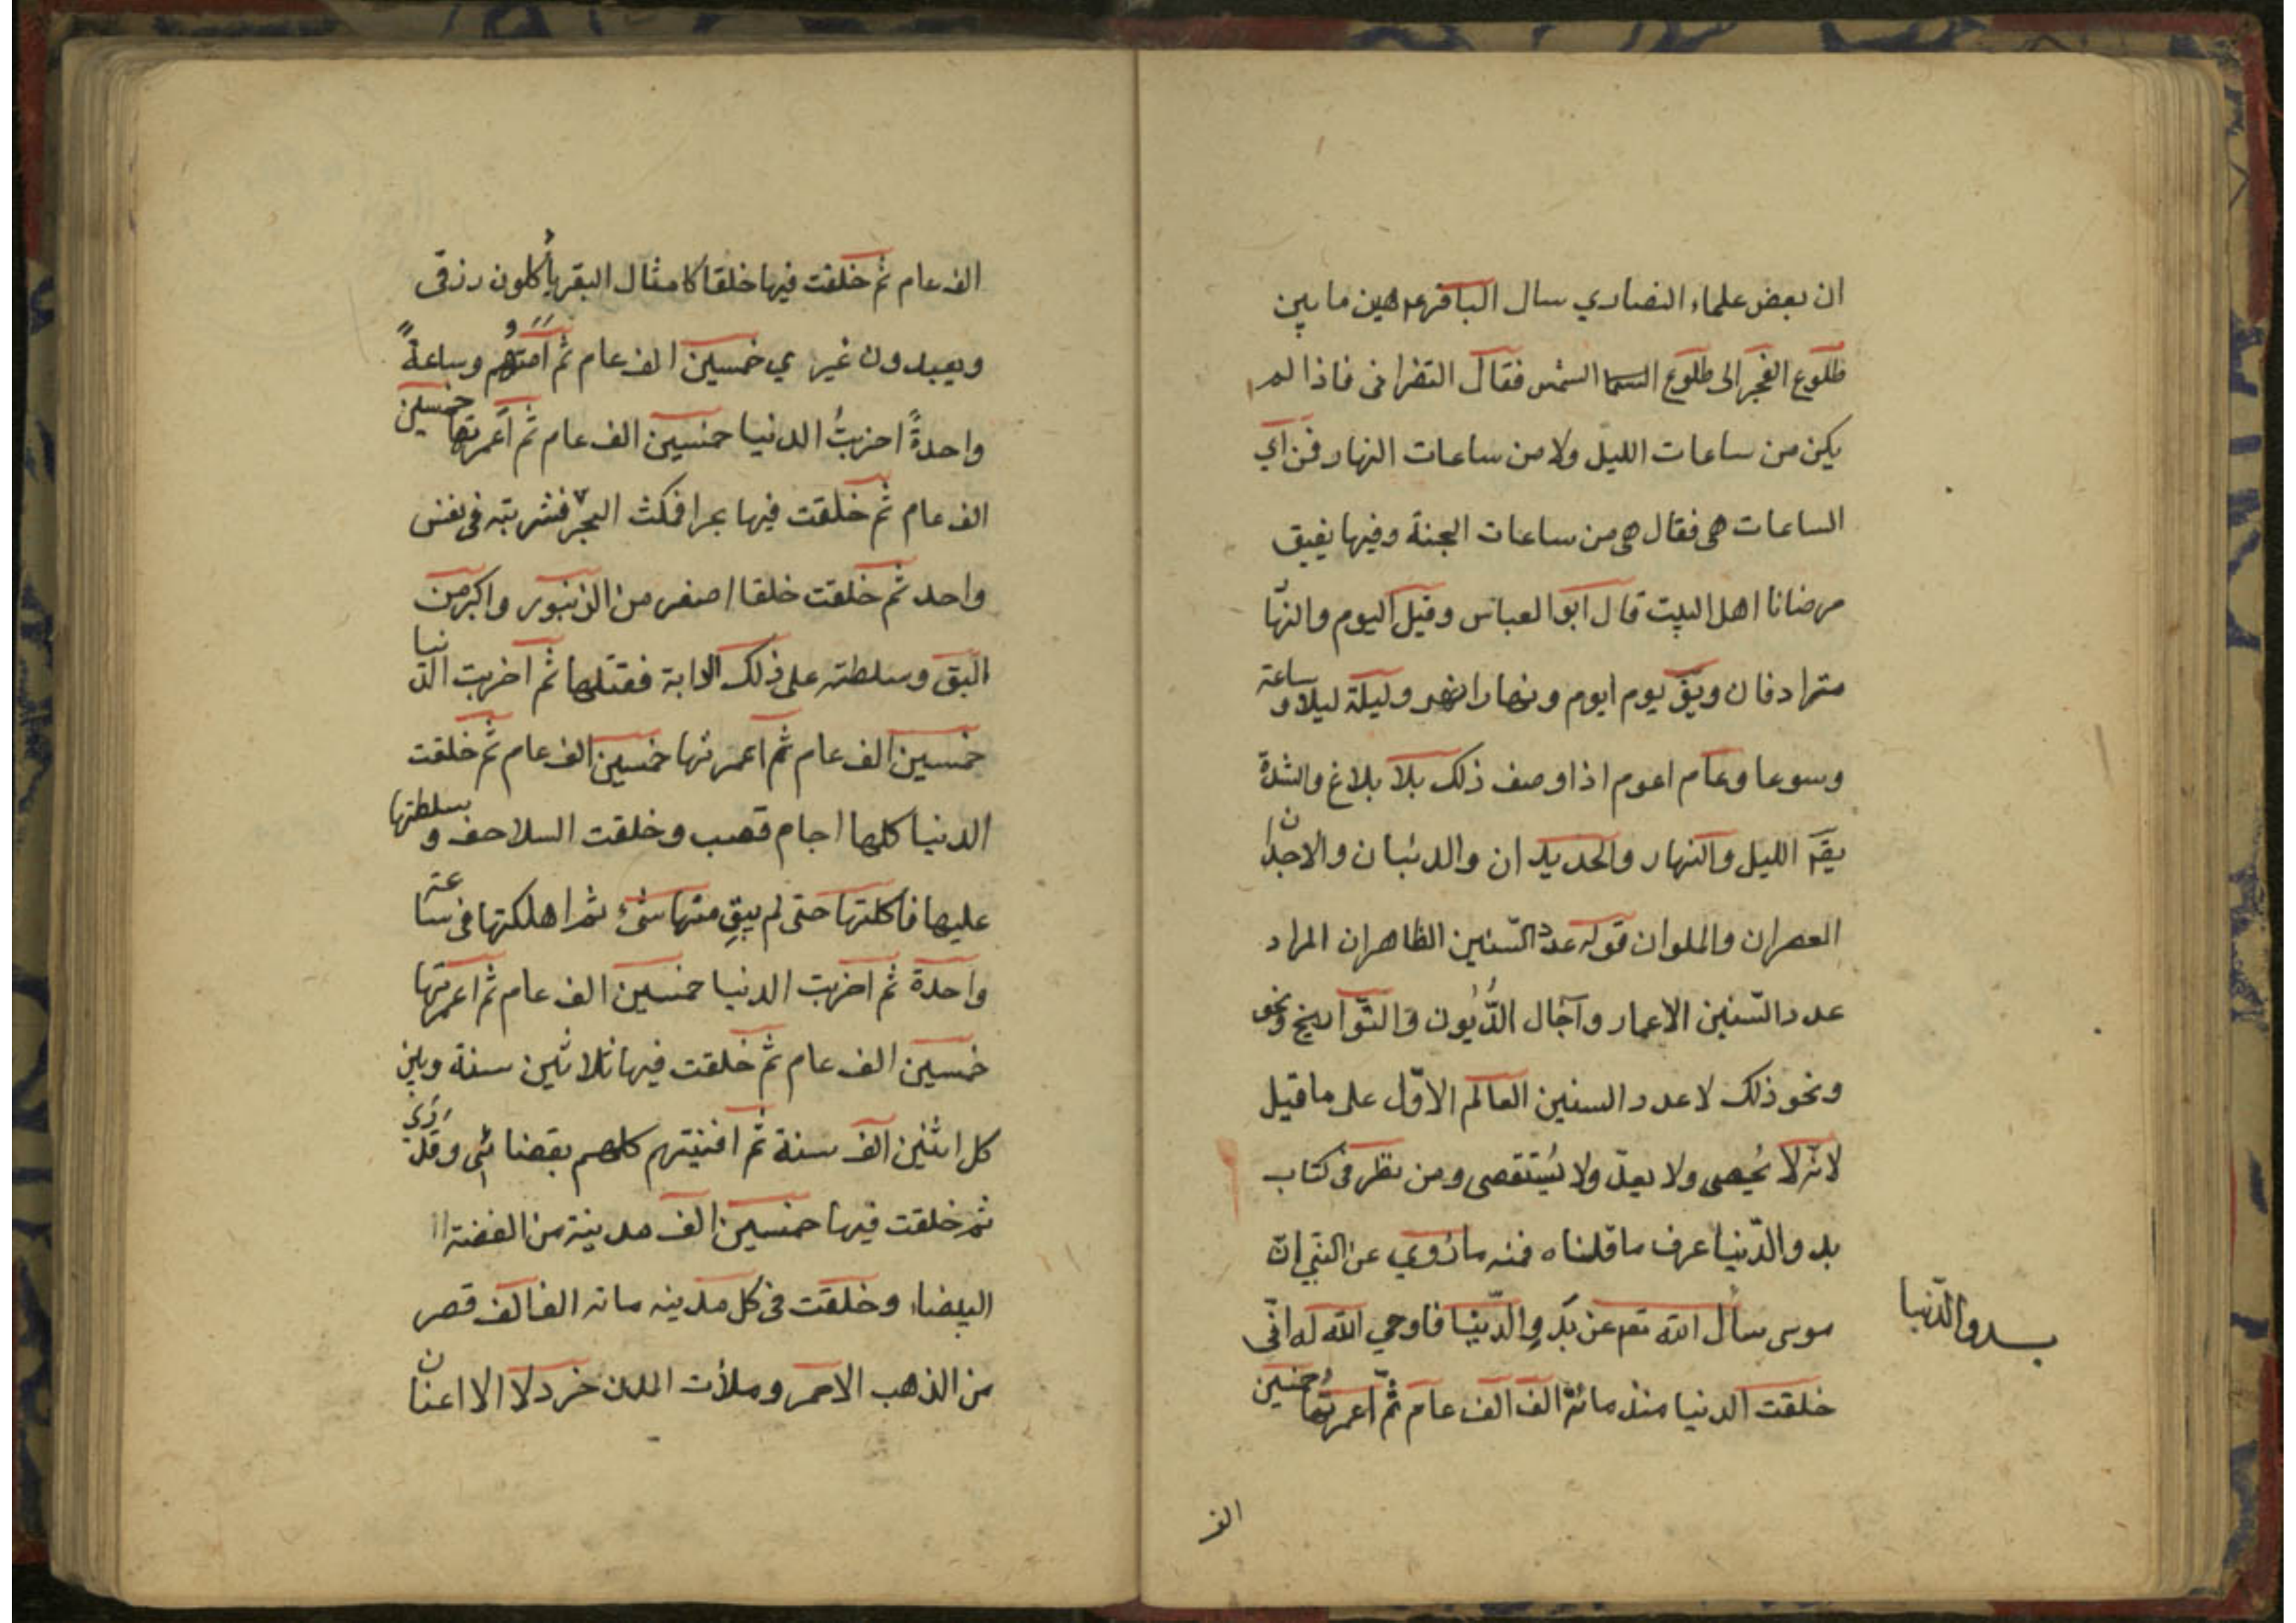 ان بعض علماء النصاري سال الباقر عم هين ما بين
طلوع الفجر الى طلوع السما الشمس فقال النضرانى فاذا لم
يكن من ساعات الليل ولا من ساعات النهار فمن اي
الساعات هى فقال هى من ساعات الجنة وفيها يفيق
مرضانا اهل البيت قال ابو العباس وقيل اليوم والنهّا
مترادفان ويقٓ يوم ايوم ونهار انهر وليلة ليلاو ساعة
وسوعا وعام اعوم اذا وصف ذلك بلا بلاغ والشدة
يقٓ الليل والنهار والحديدان والدئبان والاجدان
العصران والملوان قوله عدد السّنين الظاهر ان المراد
عدد السّنين الاعمار وآجال الدُّيُون والتّواريخ ونحو
ونحو ذلك لا عدد السنين العالم الاوّل على ما قيل
لانّه لا يُحصى ولا يعدّ ولا يُستقصى ومن نظر فى كتاب
بدو الدّنيا عرف ما قلناه فمنه ما رُوي عن النبّي انّ
موسى سأل الله تعم عن بَدوِ الدّنيا فاوحي الله له انّى
خلقت الدنيا منذ مائة الف الف عام ثمّ اعمرتُها خمسين
بدو الدّنيا
الف
الف عام ثم خلقت فيها خلقا كامثال البقر يأكلون رزقى
ويعبدون غيري خمسين الف عام ثم اَمَتهُّم وساعةً
واحدةً اخربتُ الدنيا خمسين الف عام ثم اَعمرتها خمسين
الف عام ثم خلقت فيها بحرا فمكث البحر فشربته فى نفس
واحد ثم خلقت خلقا اصغر من الزنبور واكبر من
البق وسلطته على ذلك الدابة فقتلها ثم اخربت الدّنيا
خمسين الف عام ثم اعمرتها خمسين الف عام ثم خلقت
الدنيا كلها اجام قصب وخلقت السلاحف وسلطتها
عليها فاكلتها حتى لم يبقِ منها شئ ثم اهلكتها فى ساعة
واحدة ثم اخربت الدنيا خمسين الف عام ثم اعمرتها
خمسين الف عام ثم خلقت فيها ثلاثين سنة وبين
كل اثنين الف سنة ثم افنيتهم كلهم بقضائى وقدري
ثم خلقت فيها خمسين الف مدينة من الفضة
البيضاء وخلقت فى كل مدينه مائه الف الف قصر
من الذهب الاحمر وملأت المدن خردلا الا اعنان